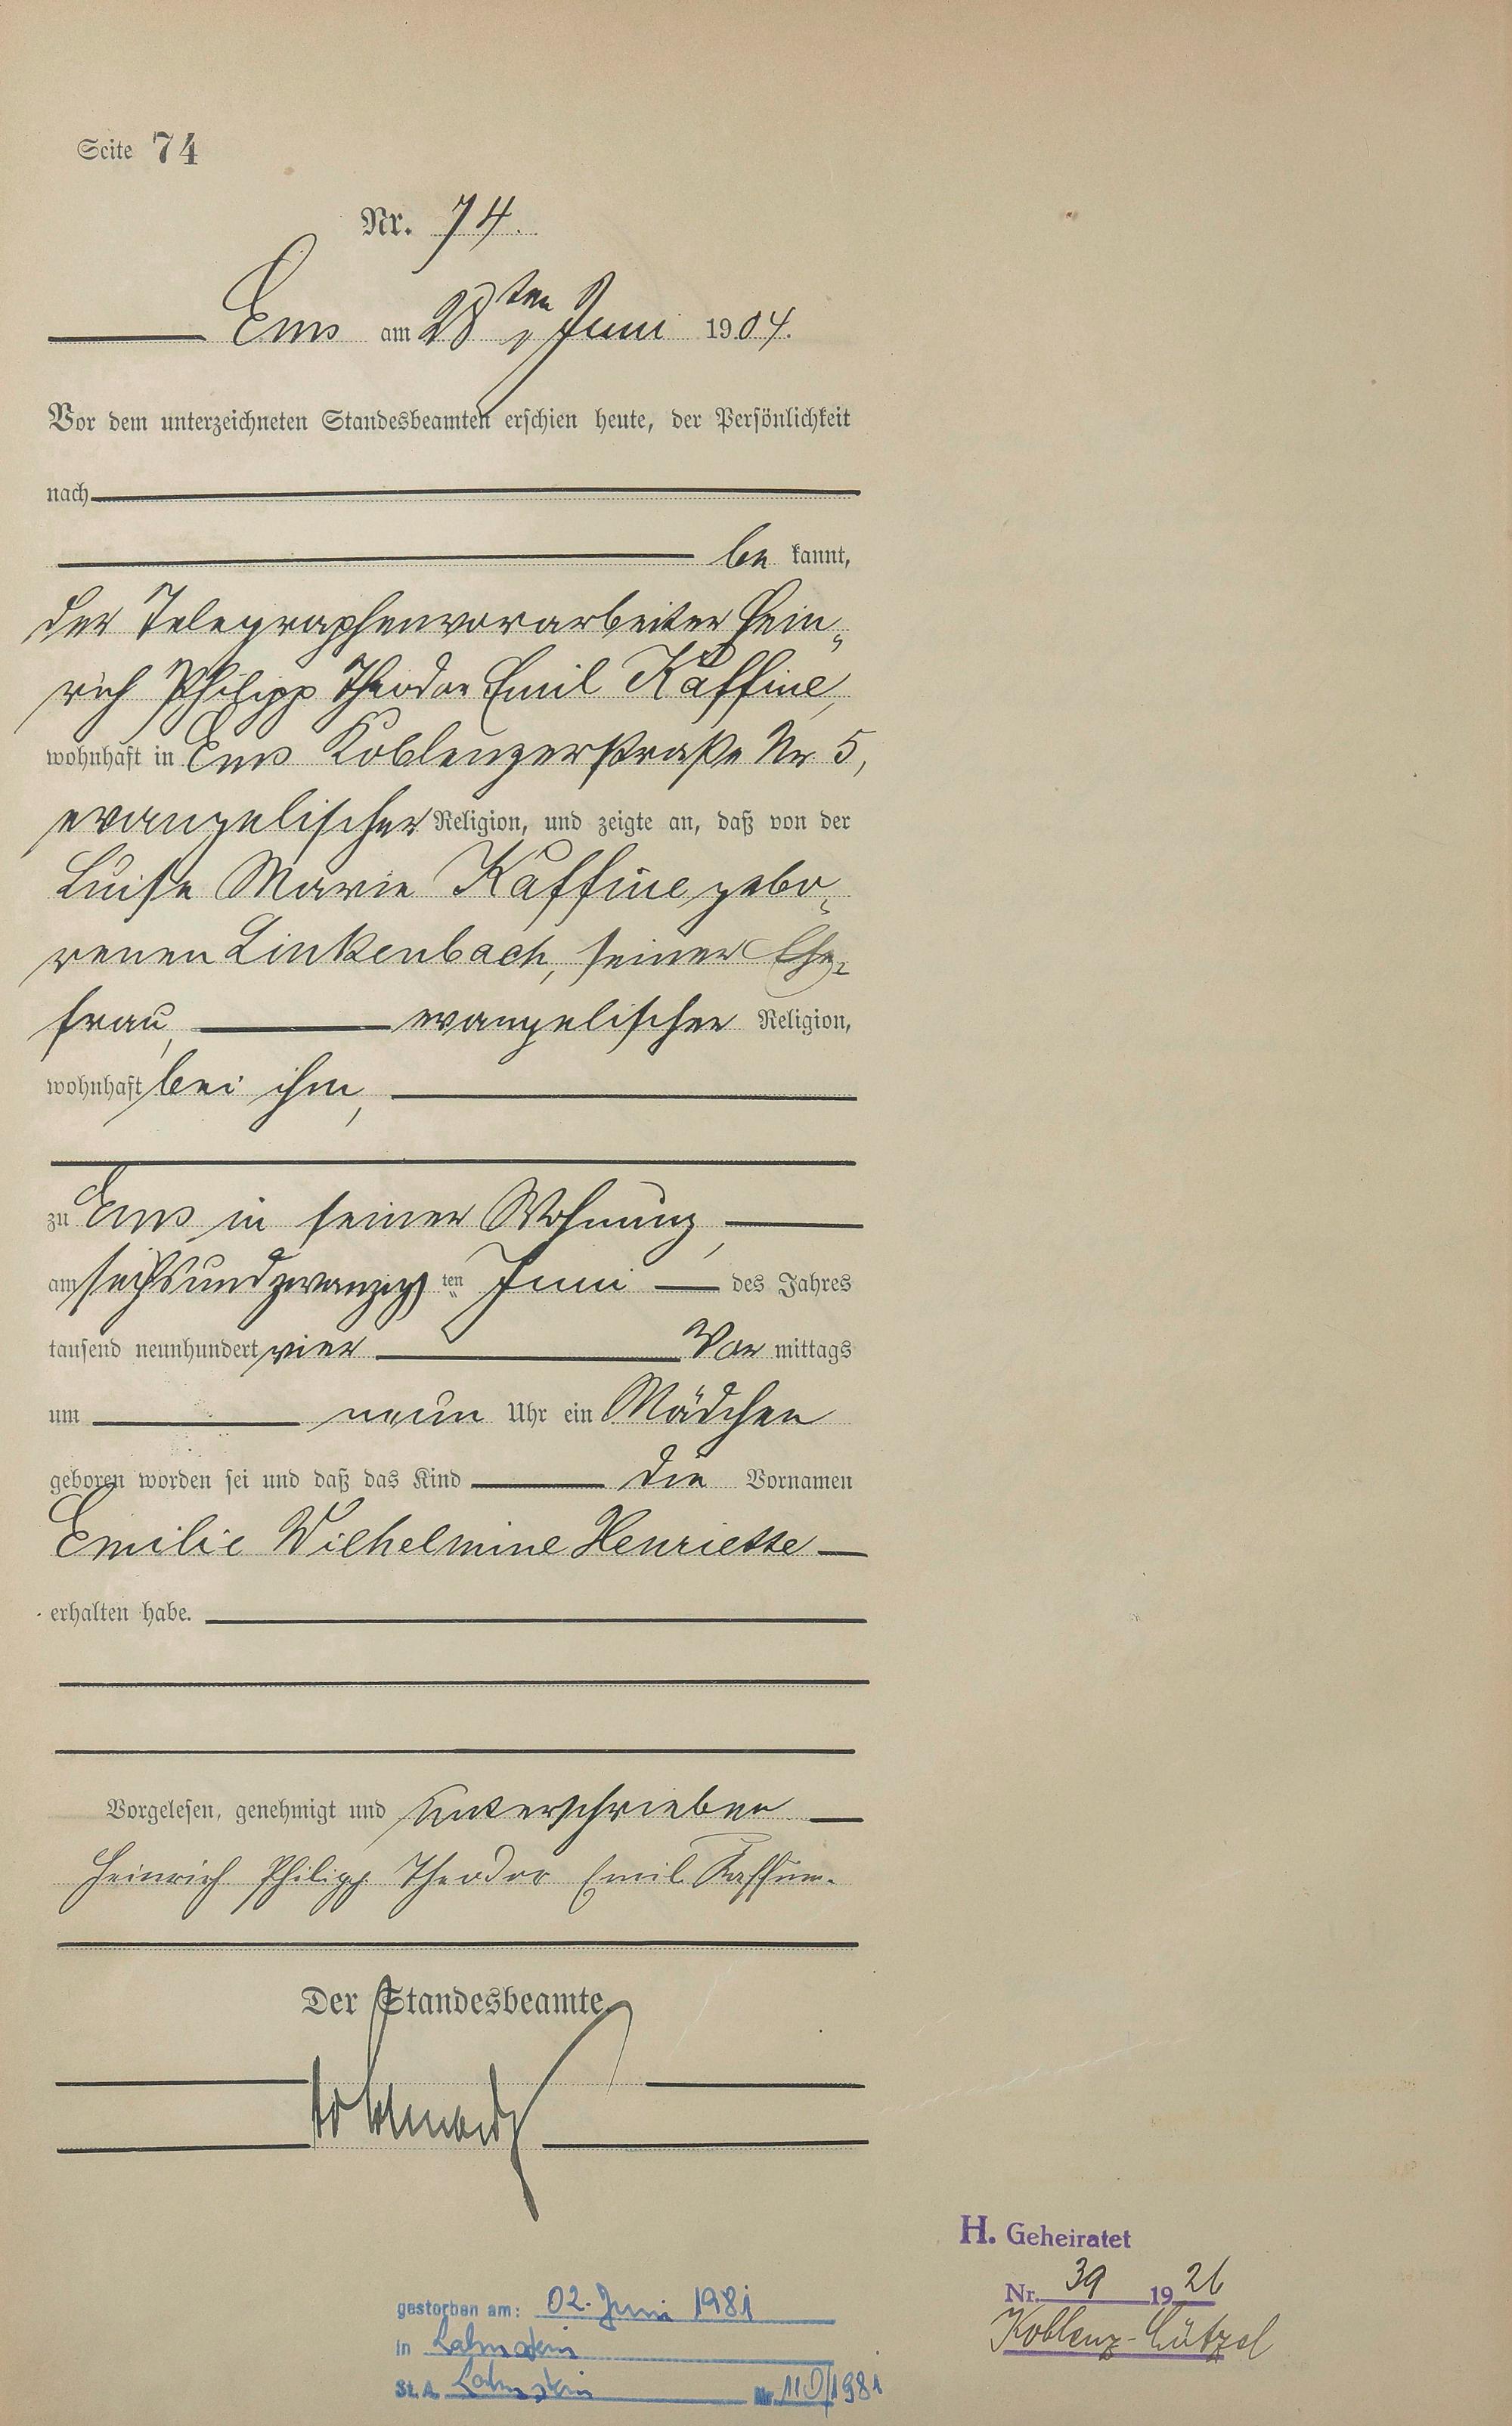 Seite 74
Nr. 74.
Ems am 28ten Juni 1904.
Vor dem unterzeichneten Standesbeamten erschien heute, der Persönlichkeit
nach
be kannt,
der Telegraphenvorarbeiter Hein-
rich Philipp Theodor Emil Kaffine,
wohnhaft in Ems Koblenzerstraße Nr. 5,
evangelischer Religion, und zeigte an, daß von der
Luise Marie Kaffine, gebo-
renen Linkenbach, seiner Ehe-
frau, evangelischer Religion,
wohnhaft bei ihm,
zu Ems in seiner Wohnung,
am sechsundzwanzig ten Juni des Jahres
tausend neunhundert vier Vor mittags
um neun Uhr ein Mädchen
geboren worden sei und daß das Kind die Vornamen
Emilie Wilhelmine Henriette
erhalten habe.
Vorgelesen, genehmigt und unterschrieben
Heinrich Philipp Theodor Emil Kaffine.
Der Standesbeamte.
H. Geheiratet
Nr. 39 1926
Koblenz-Lützel
gestorben am: 02. Juni 1981
in Lahnstein
St.A. Lahnstein Nr. 110/1981